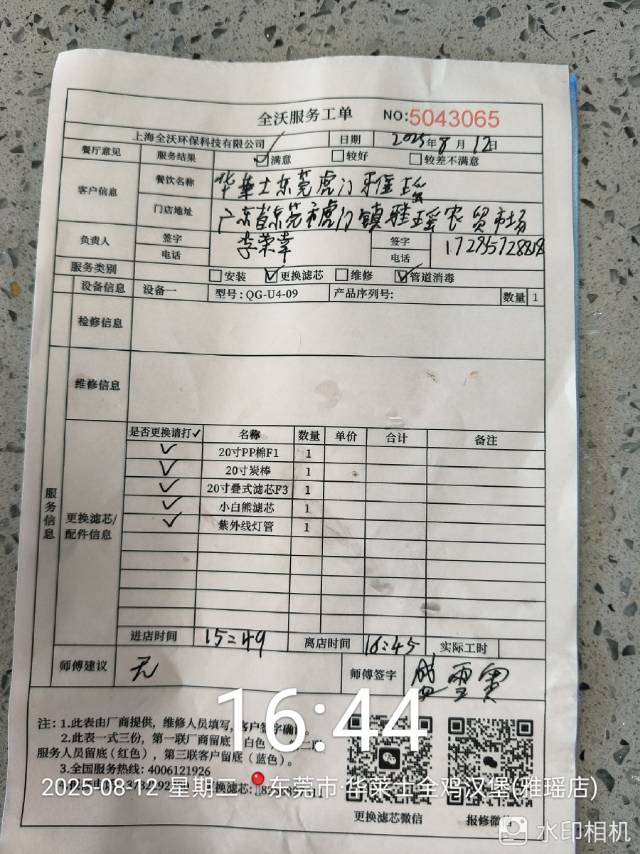 全沃服务工单 NO:5043065
上海全沃环保科技有限公司 日期 2025年8月12日
餐厅意见 服务结果 ☑满意 □较好 □较差不满意
客户信息 餐饮名称 华莱士东莞虎门雅瑶
门店地址 广东省东莞市虎门镇雅瑶农贸市场
负责人 签字 李荣幸 签字
电话 电话
服务类别 □安装 ☑更换滤芯 □维修 ☑管道消毒
设备信息 设备一 型号:QG-U4-09 产品序列号: 数量 1
检修信息
维修信息
服务信息
更换滤芯/配件信息
是否更换请打✓ 名称 数量 单价 合计 备注
✓ 20寸PP棉F1 1
✓ 20寸炭棒 1
✓ 20寸叠式滤芯F3 1
✓ 小白熊滤芯 1
✓ 紫外线灯管 1
进店时间 15=49 离店时间 16=45 实际工时
师傅建议 无 师傅签字
注: 1.此表由厂商提供, 维修人员填写, 客户签字确
2.此表一式三份, 第一联厂商留底 白色
服务人员留底(红色), 第三联客户留底(蓝色)。
3.全国服务热线: 4006121926
更换滤芯微信 报修微信
16:44
2025-08-12 星期二 东莞市·华莱士全鸡汉堡(雅瑶店)
水印相机